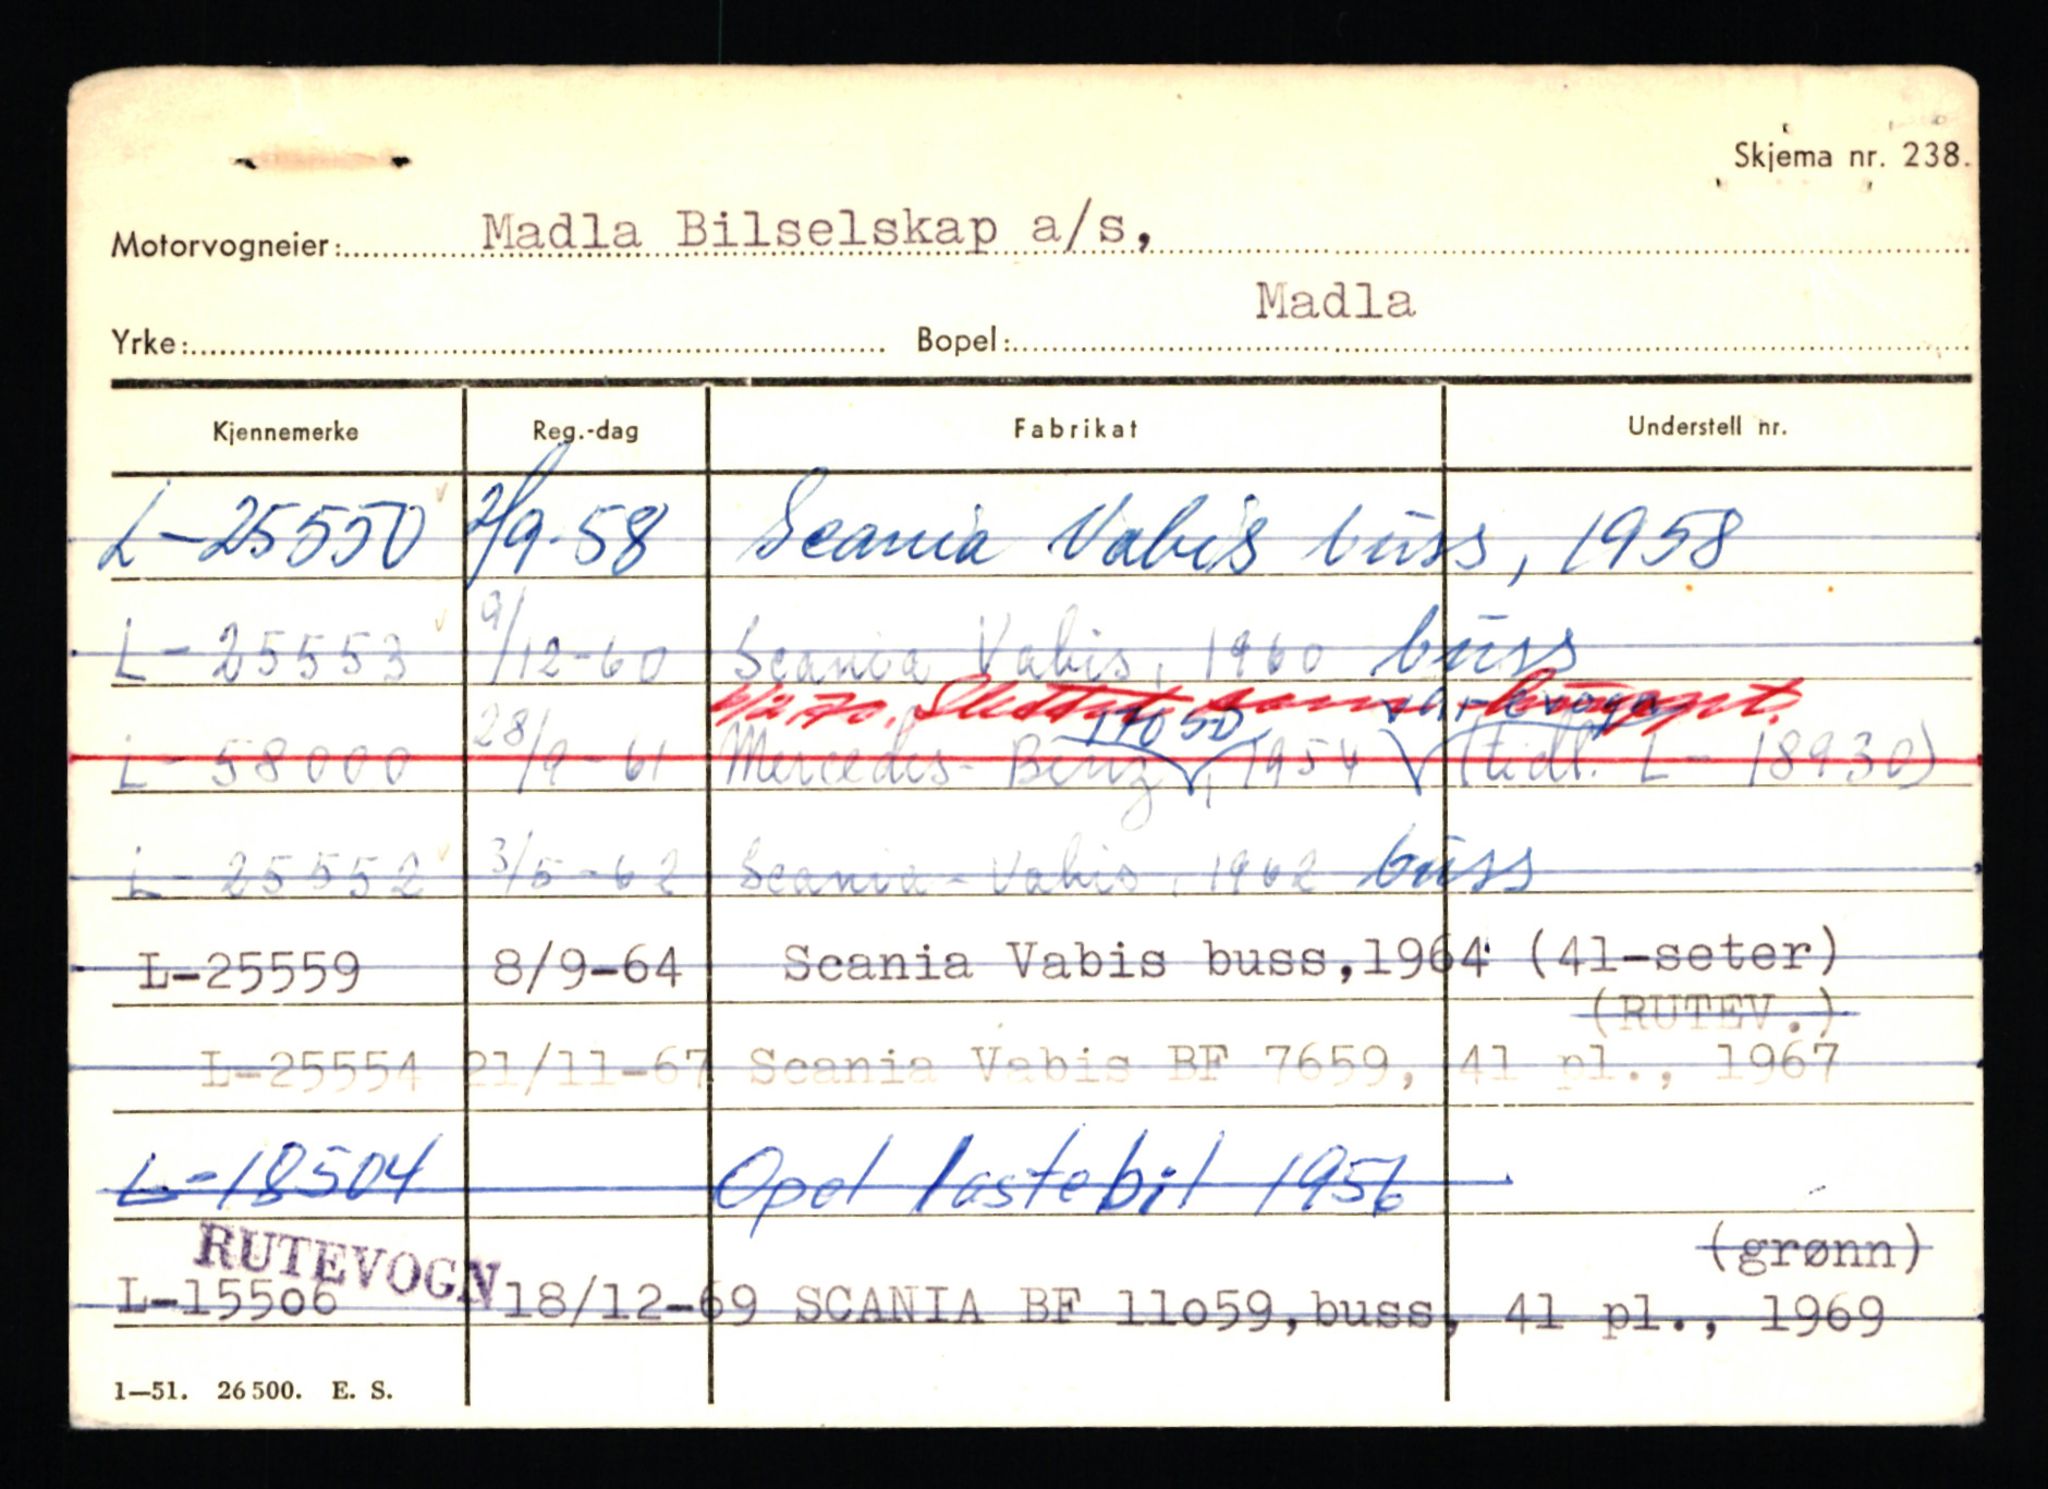 Skjema nr. 238.
Motorvogneier: Madla Bilselskap a/s,
Madla
Yrke: Bopel:
Kjennemerke Reg.-dag Fabrikat Understell nr.
L-25550 2/9-58 Scania Vabis buss, 1958
L-25553 9/12-60 Scania Vabis, 1960 buss
Slettet som
L-58000 28/9-61 Mercedes-Benz, 1954 (tidl. L-18930)
L-25552 3/5-62 Scania-Vabis, 1962 buss
L-25559 8/9-64 Scania Vabis buss,1964 (41-seter)
(RUTEV.)
L-25554 21/11-67 Scania Vabis BF 7659, 41 pl., 1967
L-18504 Opel lastebil 1956
RUTEVOGN (grønn)
L-15506 18/12-69 SCANIA BF 11o59,buss, 41 pl., 1969
1—51. 26500. E. S.